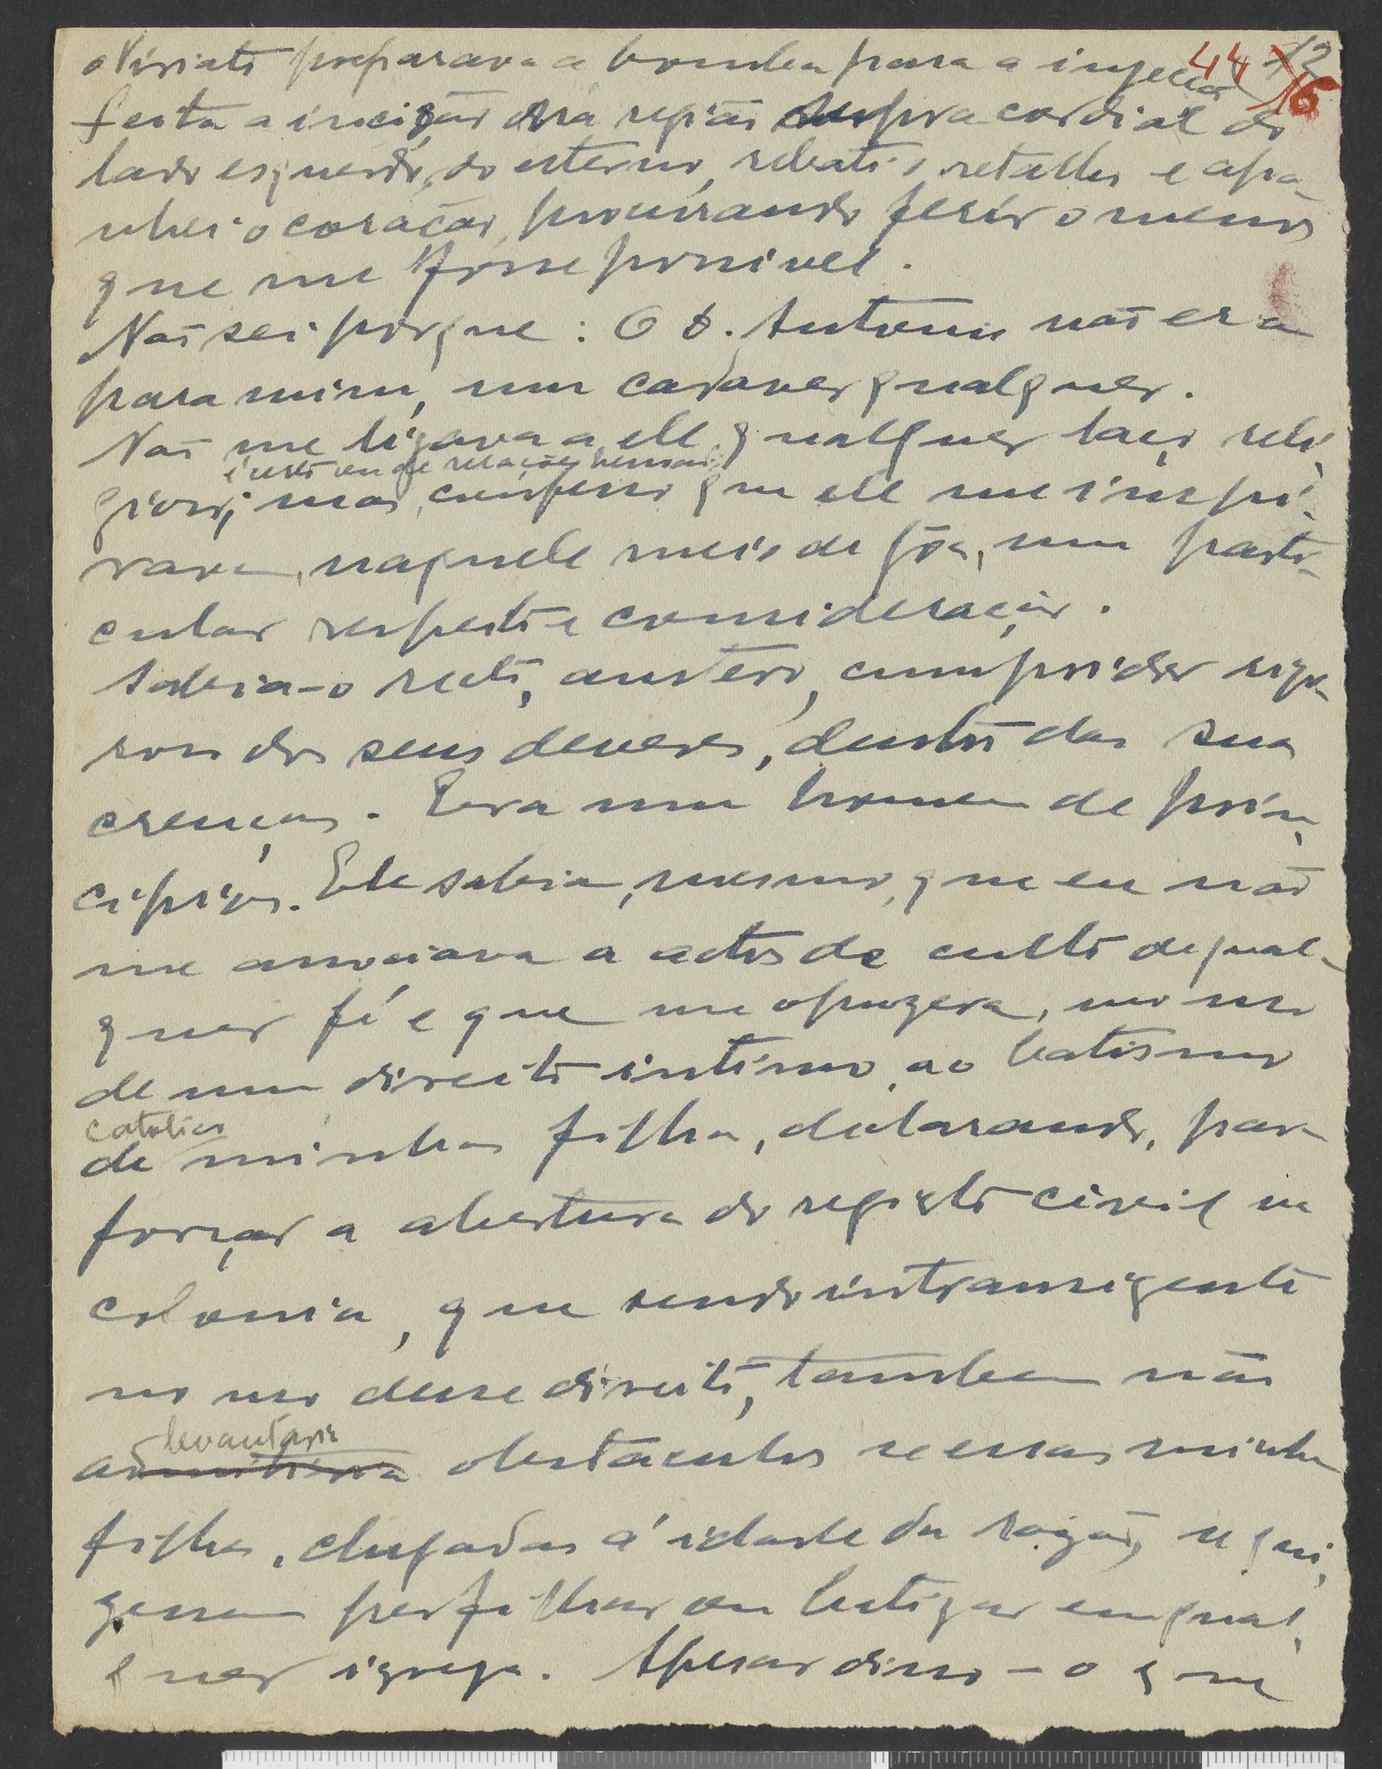 o Viriato preparava a bomba para a injecção 44 12
16
feita a incisão na região supra cordial do
lado esquerdo, do esterno, rebati o retalho e apa-
nhei o coração, procurando ferir o menos
que me fosse possivel.
Não sei porque: O D. Antonio não era
para mim, um cadaver qualquer.
Não me ligava a ele qualquer laço reli-
gioso; mas, confesso que ele me inspi-
rava, naquele meio de Gôa, um parti-
cular respeito e consideração.
Sabia-o recto, austero, cumpridor rigo-
roso dos seus deveres, dentro das suas
crenças. Era um homem de prin-
cipios. Ele sabia, mesmo, que eu não
me associava a actos de culto de qual-
quer fé e que me opuzera, no uso
de um direito intimo, ao batismo
catolico
de minhas filhas, declarando, para
forçar a abertura do registo civil na
colonia, que sendo intransigente
no uso desse direito, tambem não
levantaria
obstaculos se essas minhas
filhas, chegadas á idade da razão, se qui-
zessem perfilhar ou batizar em qual-
quer igreja. Apesar disso - o que